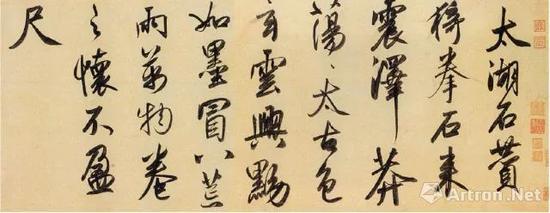 太湖石賛
猗拳石来
震澤莽
蕩〻太古色
玄雲興黝
如墨冒八荒
雨萬物卷
之懷不盈
尺
Artron.Net